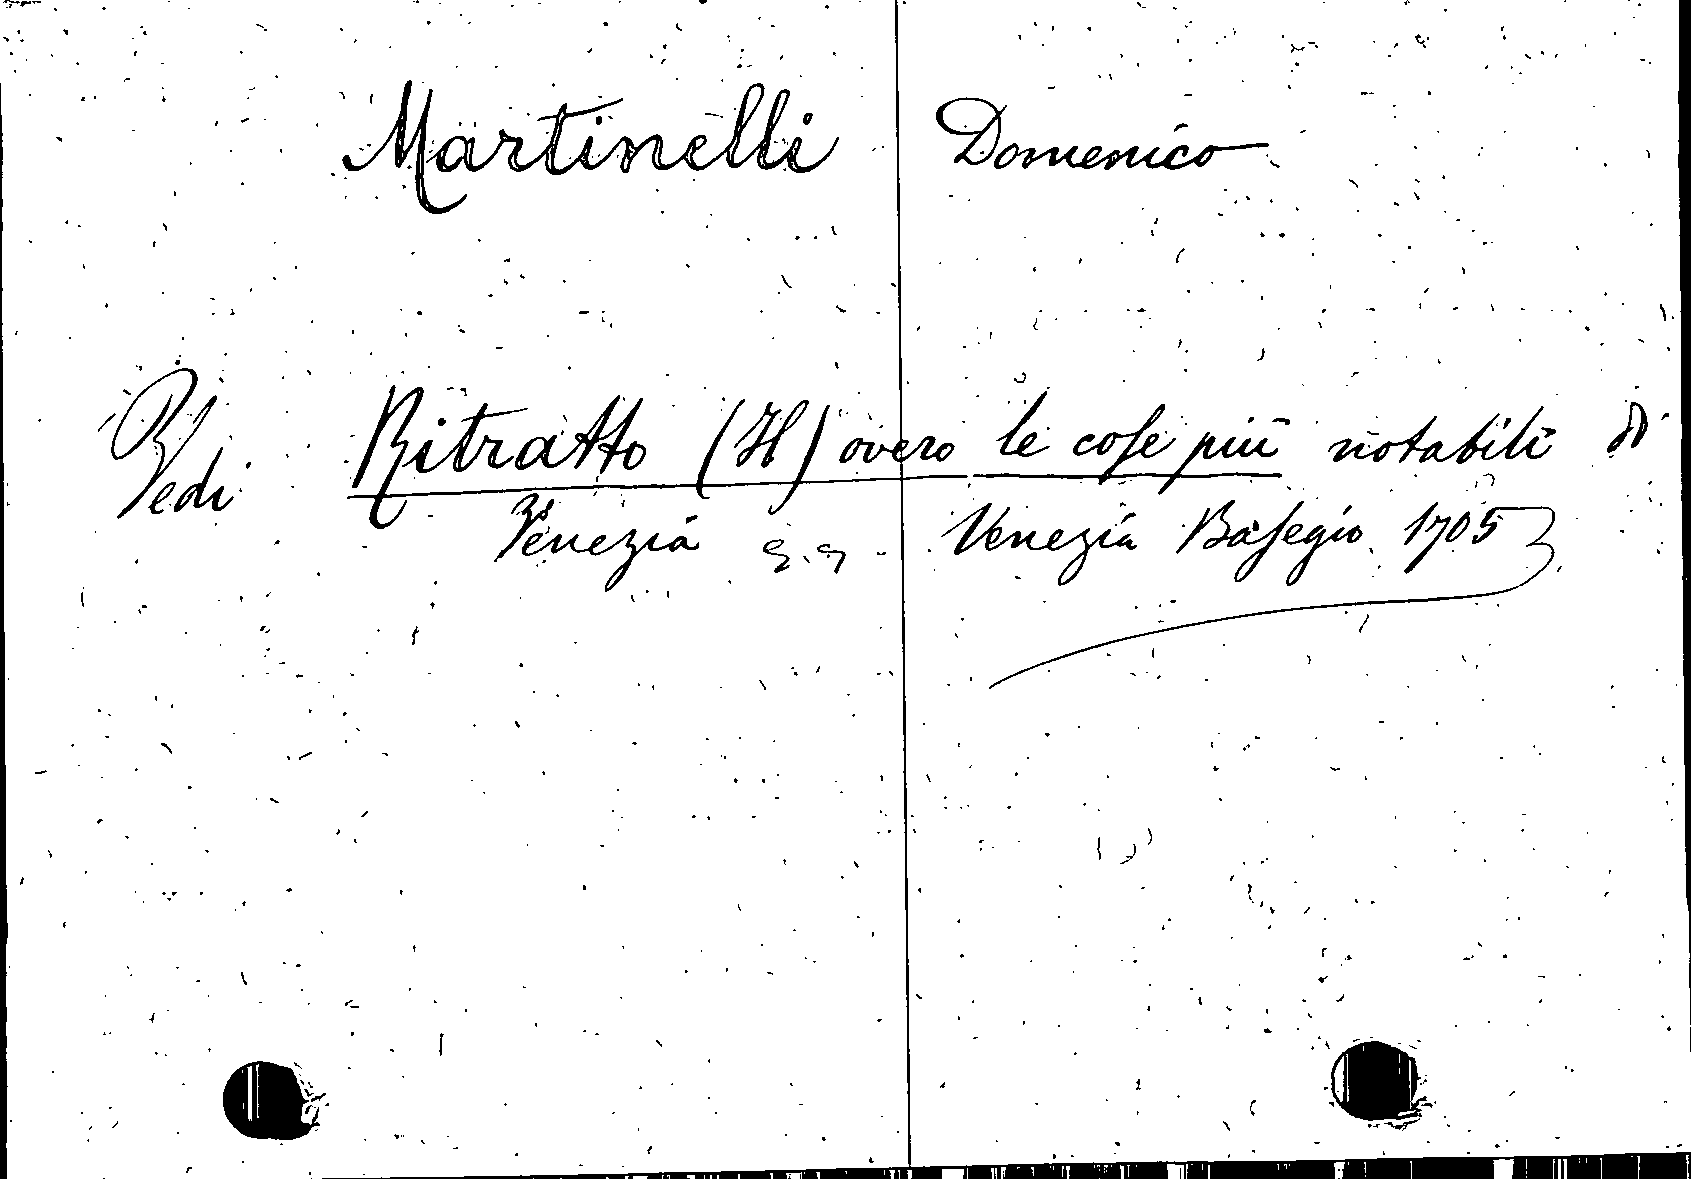 Martinelli Domenico
Vedi Ritratto (Il) overo le cose più notabili di
Venezia Venezia Basegio 1705